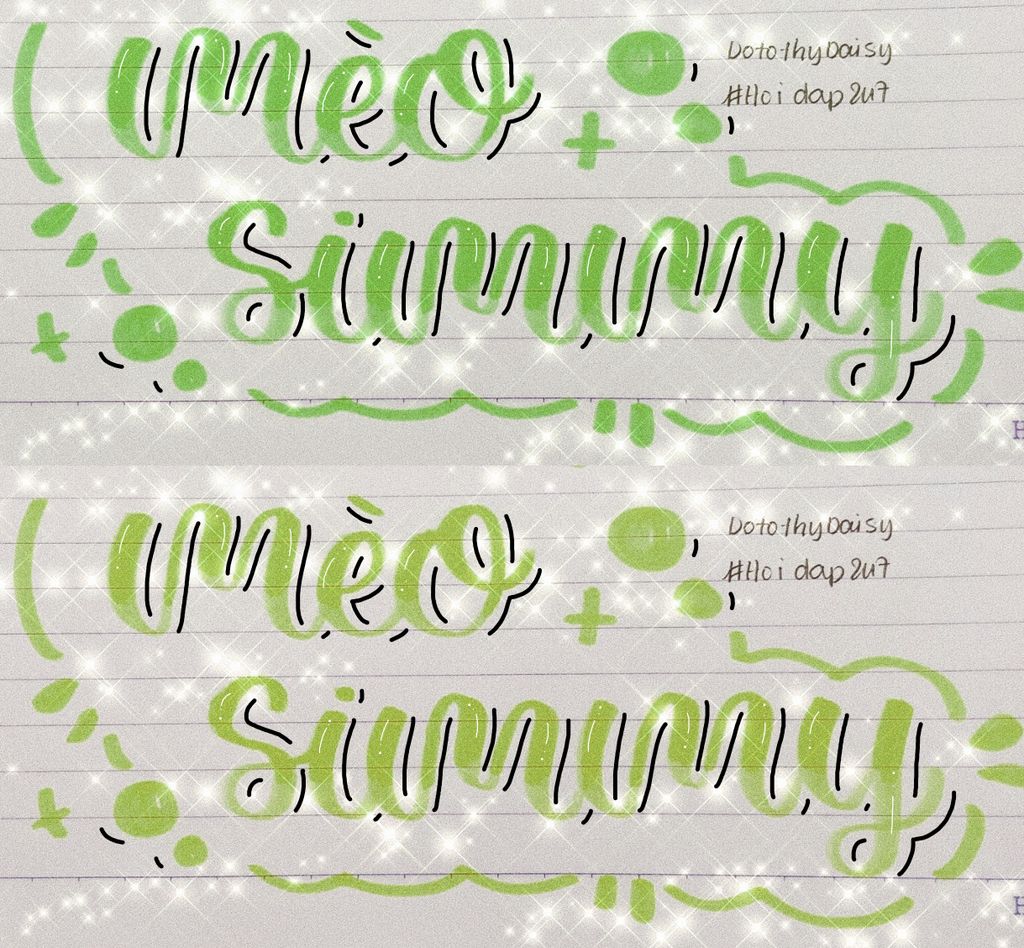 Mèo
DorothyDaisy
#Hoi dap 247
Simmy
Mèo
DorothyDaisy
#Hoi dap 247
Simmy